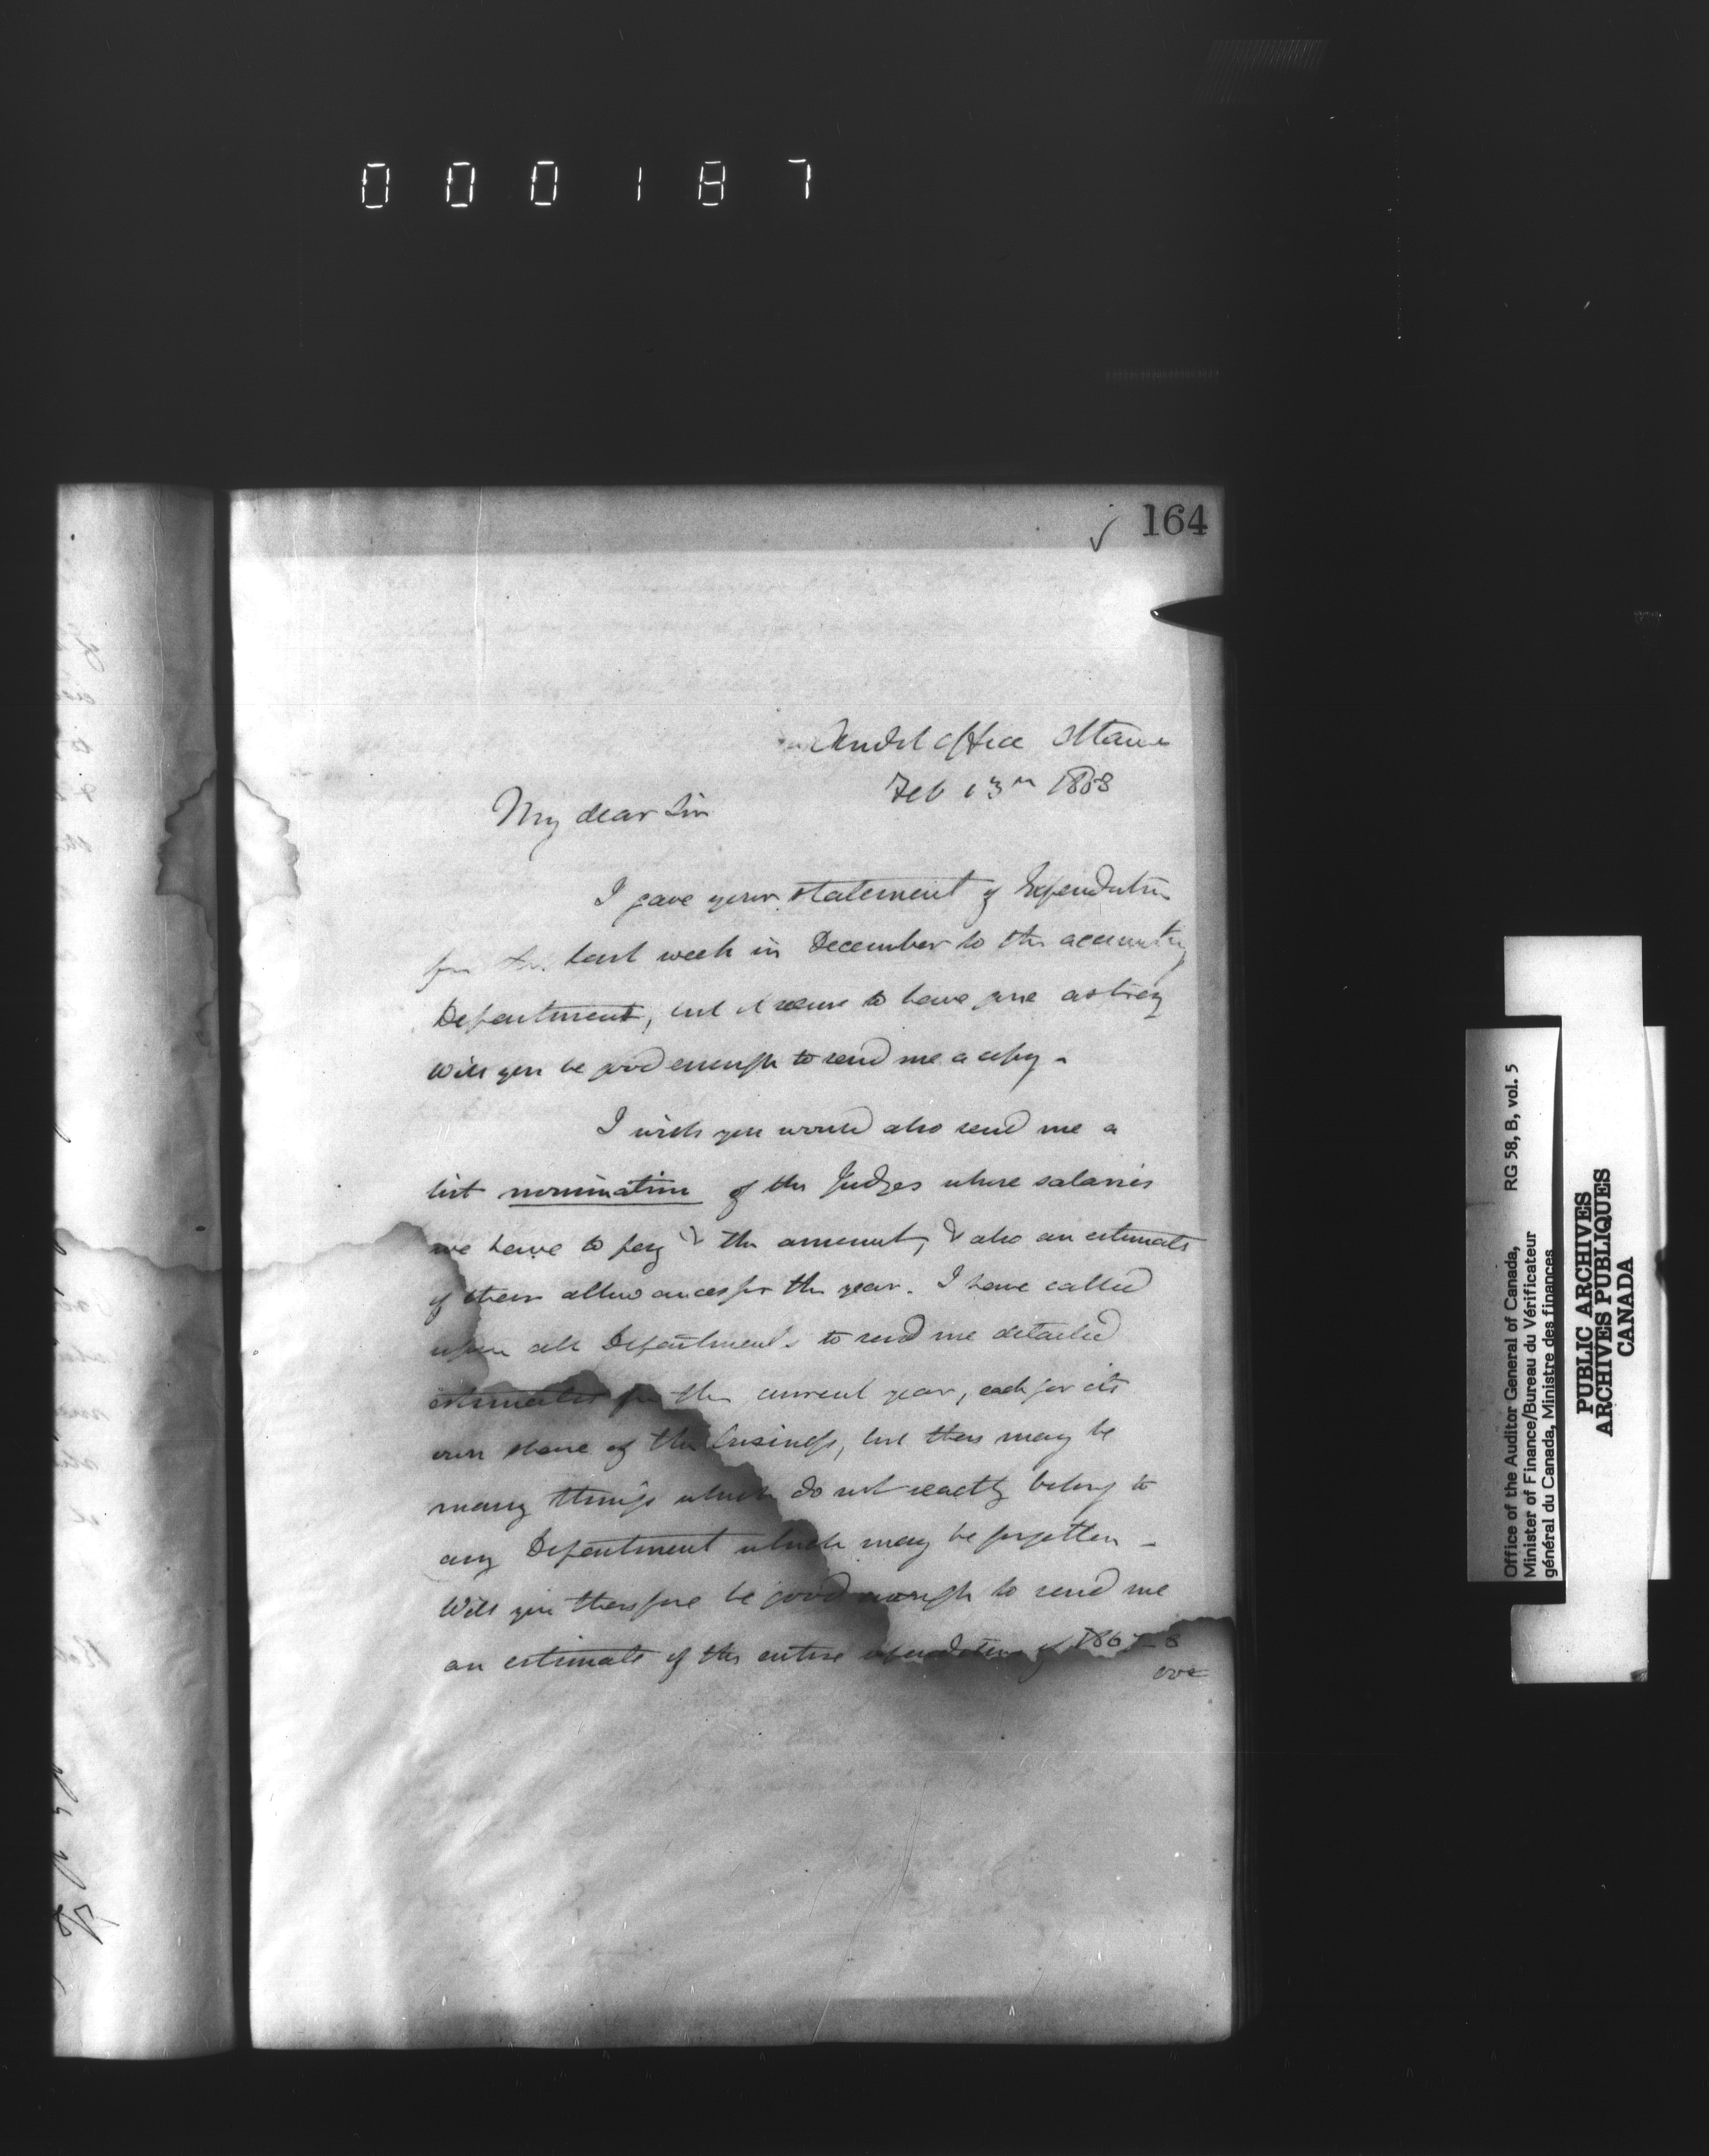 000187
164
Audit Office Ottawa
Feb 13th 1868
My dear Sir
I gave your statement of Expenditure
for the last week in December to the accounting
Department, but it seems to have gone astray
Will you be good enough to send me a copy -
I wish you would also send me a
list nominatim of the Judges whose salaries
we have to pay & the amount, & also an estimate
of their allowances for the year. I have called
upon all Departments to send me detailed
estimates for the current year, each for its
own share of the business, but there may be
many things which do not exactly belong to
any Department which may be forgotten -
Will you therefore be good enough to send me
an estimate of the entire expenditure of 1867-8
over
Office of the Auditor General of Canada,
RG 58, B, vol. 5
Minister of Finance/Bureau du Vérificateur
général du Canada, Ministre des finances
PUBLIC ARCHIVES
ARCHIVES PUBLIQUES
CANADA